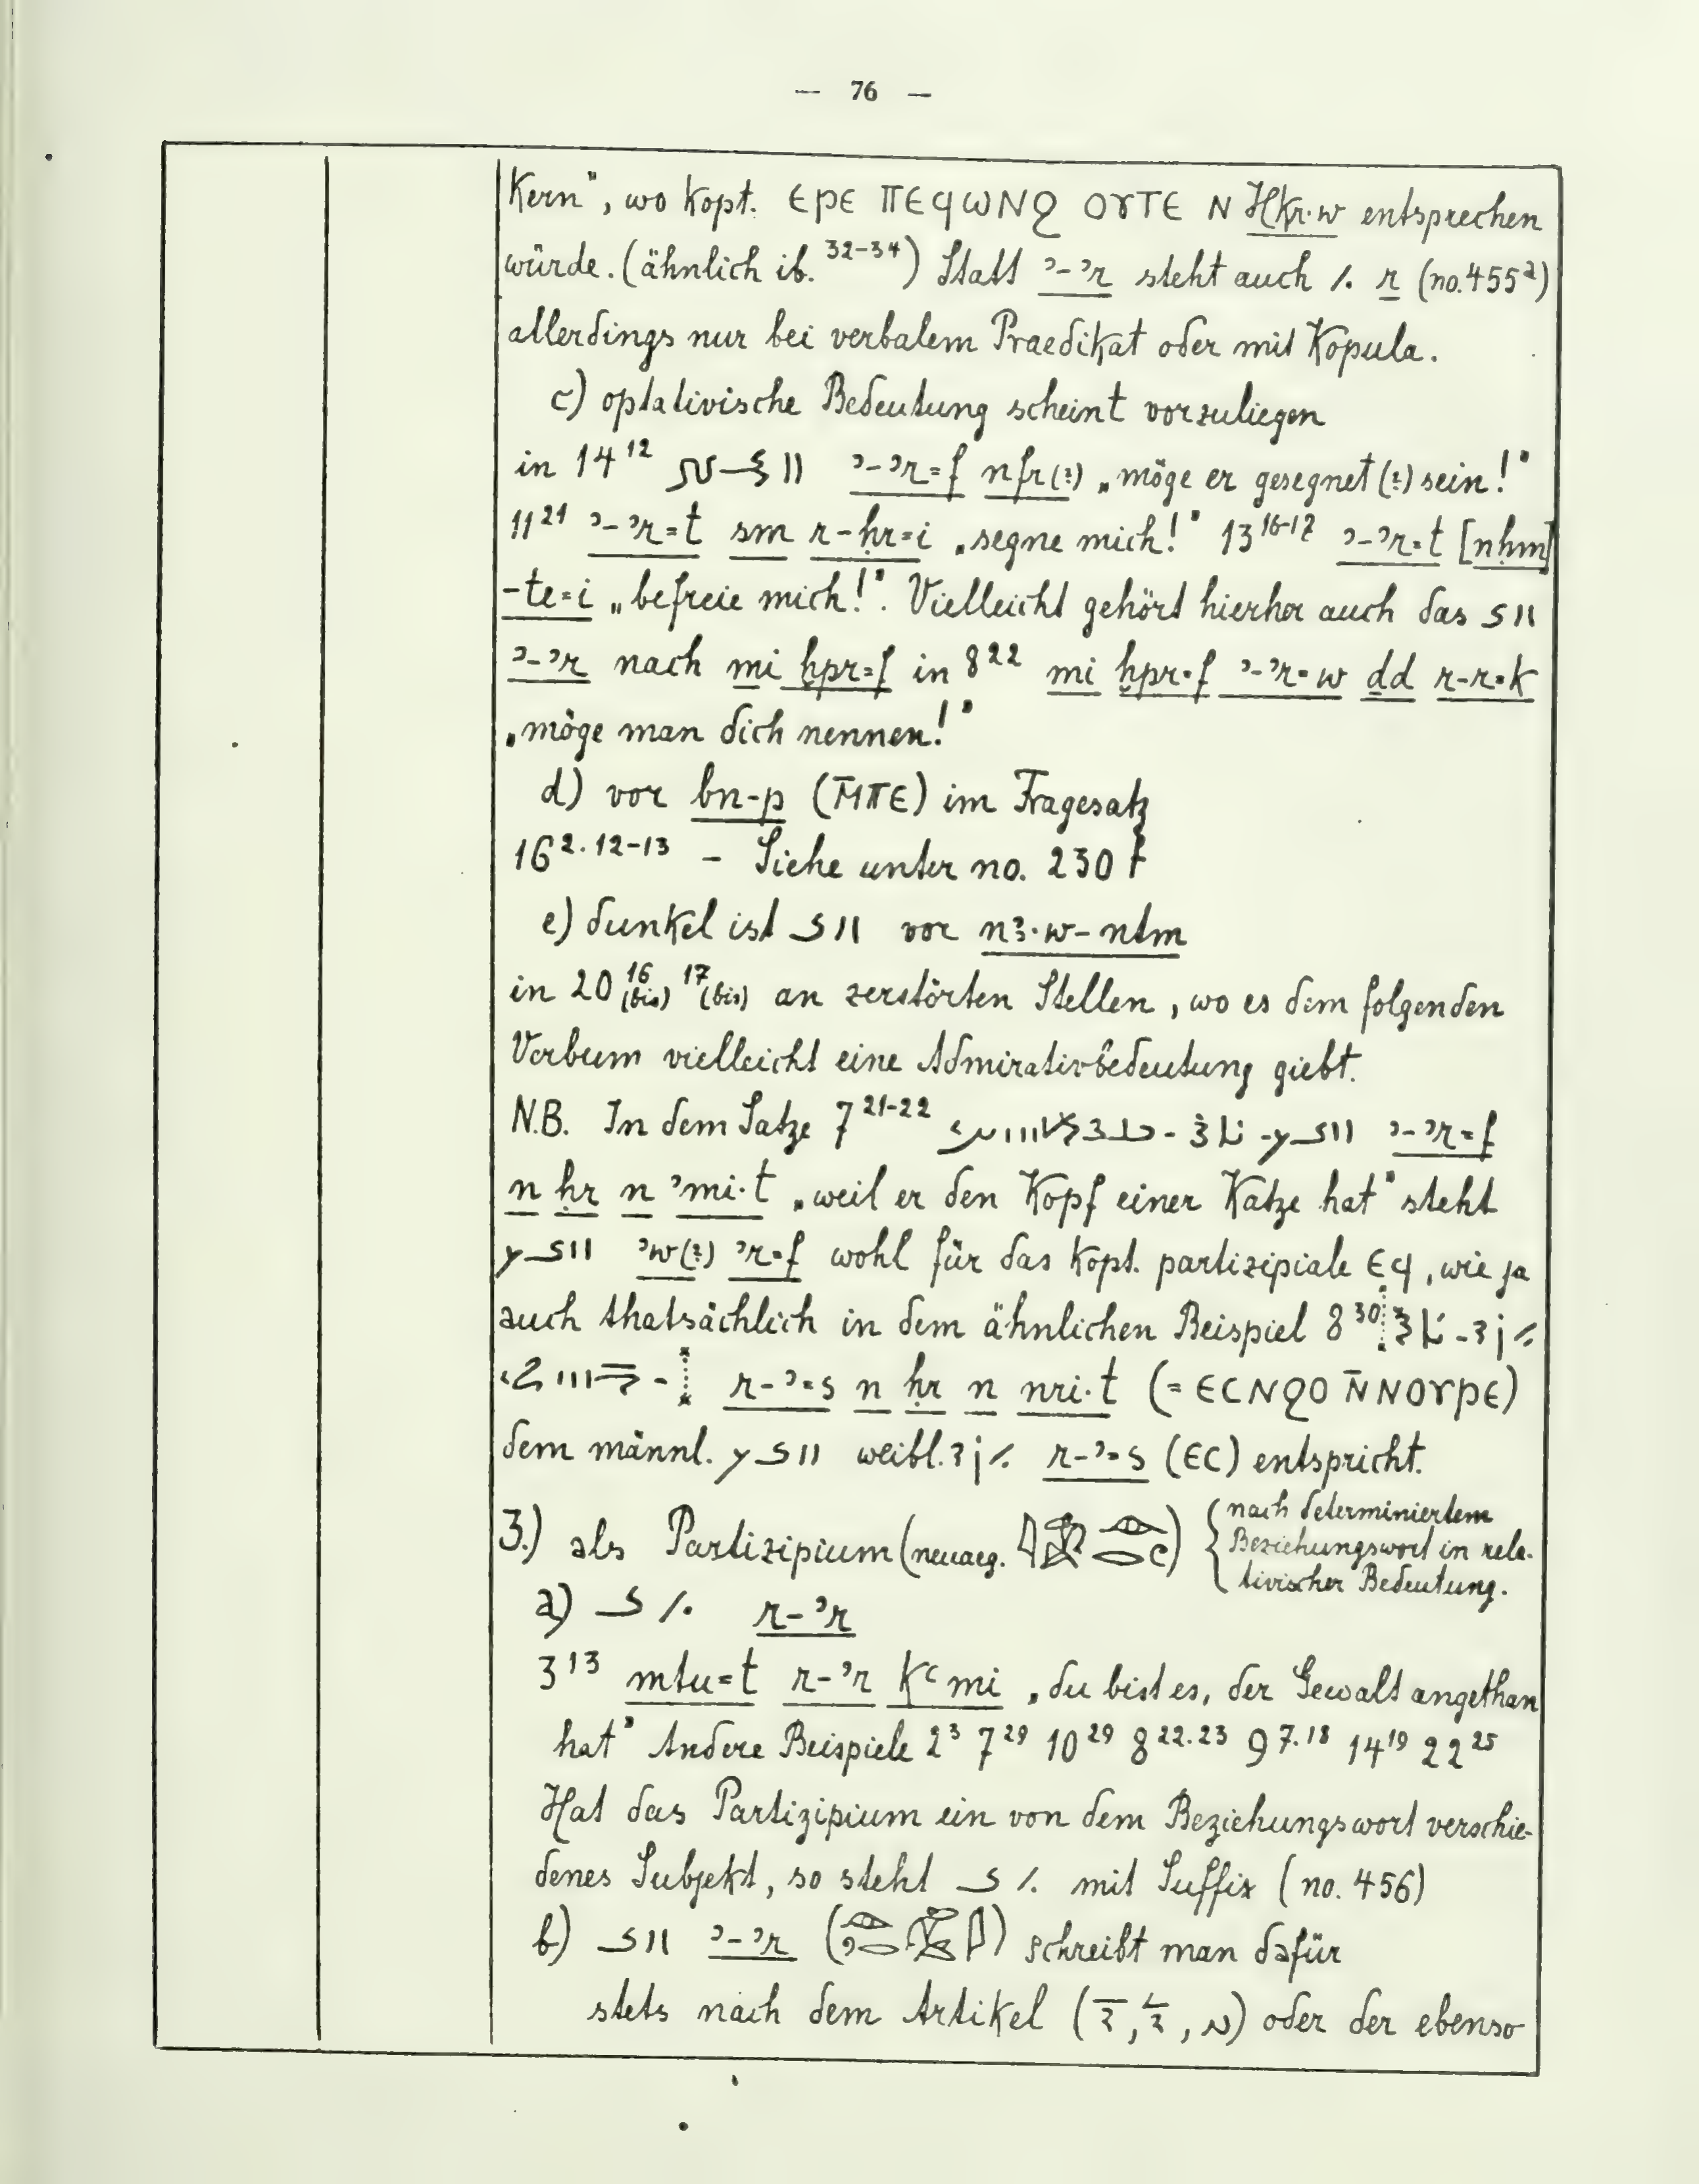 — 76 —
Kern", wo kopt. ⲉⲣⲉ ⲡⲉϥⲱⲛϩ ⲟⲩⲧⲉ ⲛ Hkr·w entsprechen
würde. (ähnlich ib. ³²⁻³⁴) Statt ʾ-ʾr steht auch ⁒ r (no. 455²)
allerdings nur bei verbalem Praedikat oder mit Kopula.
c) optativische Bedeutung scheint vorzuliegen
in 14¹² ʾ-ʾr=f nfr(?) „möge er gesegnet(?) sein!"
11²¹ ʾ-ʾr=t sm r-ḥr=i „segne mich!" 13¹⁶⁻¹⁷ ʾ-ʾr=t [nḥm]
-te=i „befreie mich!". Vielleicht gehört hierher auch das
ʾ-ʾr nach mi ḫpr=f in 8²² mi ḫpr=f ʾ-ʾr=w dd r-r=k
„möge man dich nennen!"
d) vor bn-p (ⲙ̄ⲡⲉ) im Fragesatz
16²·¹²⁻¹³ – Siehe unter no. 230 f
e) dunkel ist vor nꜣ·w-ntm
in 20 ¹⁶(bis) ¹⁷(bis) an zerstörten Stellen, wo es dem folgenden
Verbum vielleicht eine Admirativbedeutung giebt.
N.B. In dem Satze 7²¹⁻²² ʾ-ʾr=f
n ḥr n ʾmi·t „weil er den Kopf einer Katze hat" steht
ʾw(?) ʾr=f wohl für das kopt. partizipiale ⲉϥ, wie ja
auch thatsächlich in dem ähnlichen Beispiel 8³⁰
r-ʾ=s n ḥr n nri·t (= ⲉⲥⲛϩⲟ ⲛ̄ⲛⲟⲩⲣⲉ)
dem männl. weibl. r-ʾ=s (ⲉⲥ) entspricht.
3.) als Partizipium (neuaeg. ) { nach determiniertem
Beziehungswort in rela-
tivischer Bedeutung.
a) r-ʾr
3¹³ mtu=t r-ʾr kꜥmi „du bist es, der Gewalt angethan
hat" Andere Beispiele 2³ 7²⁹ 10²⁹ 8²²·²³ 9⁷·¹⁸ 14¹⁹ 22²⁵
Hat das Partizipium ein von dem Beziehungswort verschie-
denes Subjekt, so steht mit Suffix (no. 456)
b) ʾ-ʾr ( ) schreibt man dafür
stets nach dem Artikel ( , , ) oder der ebenso